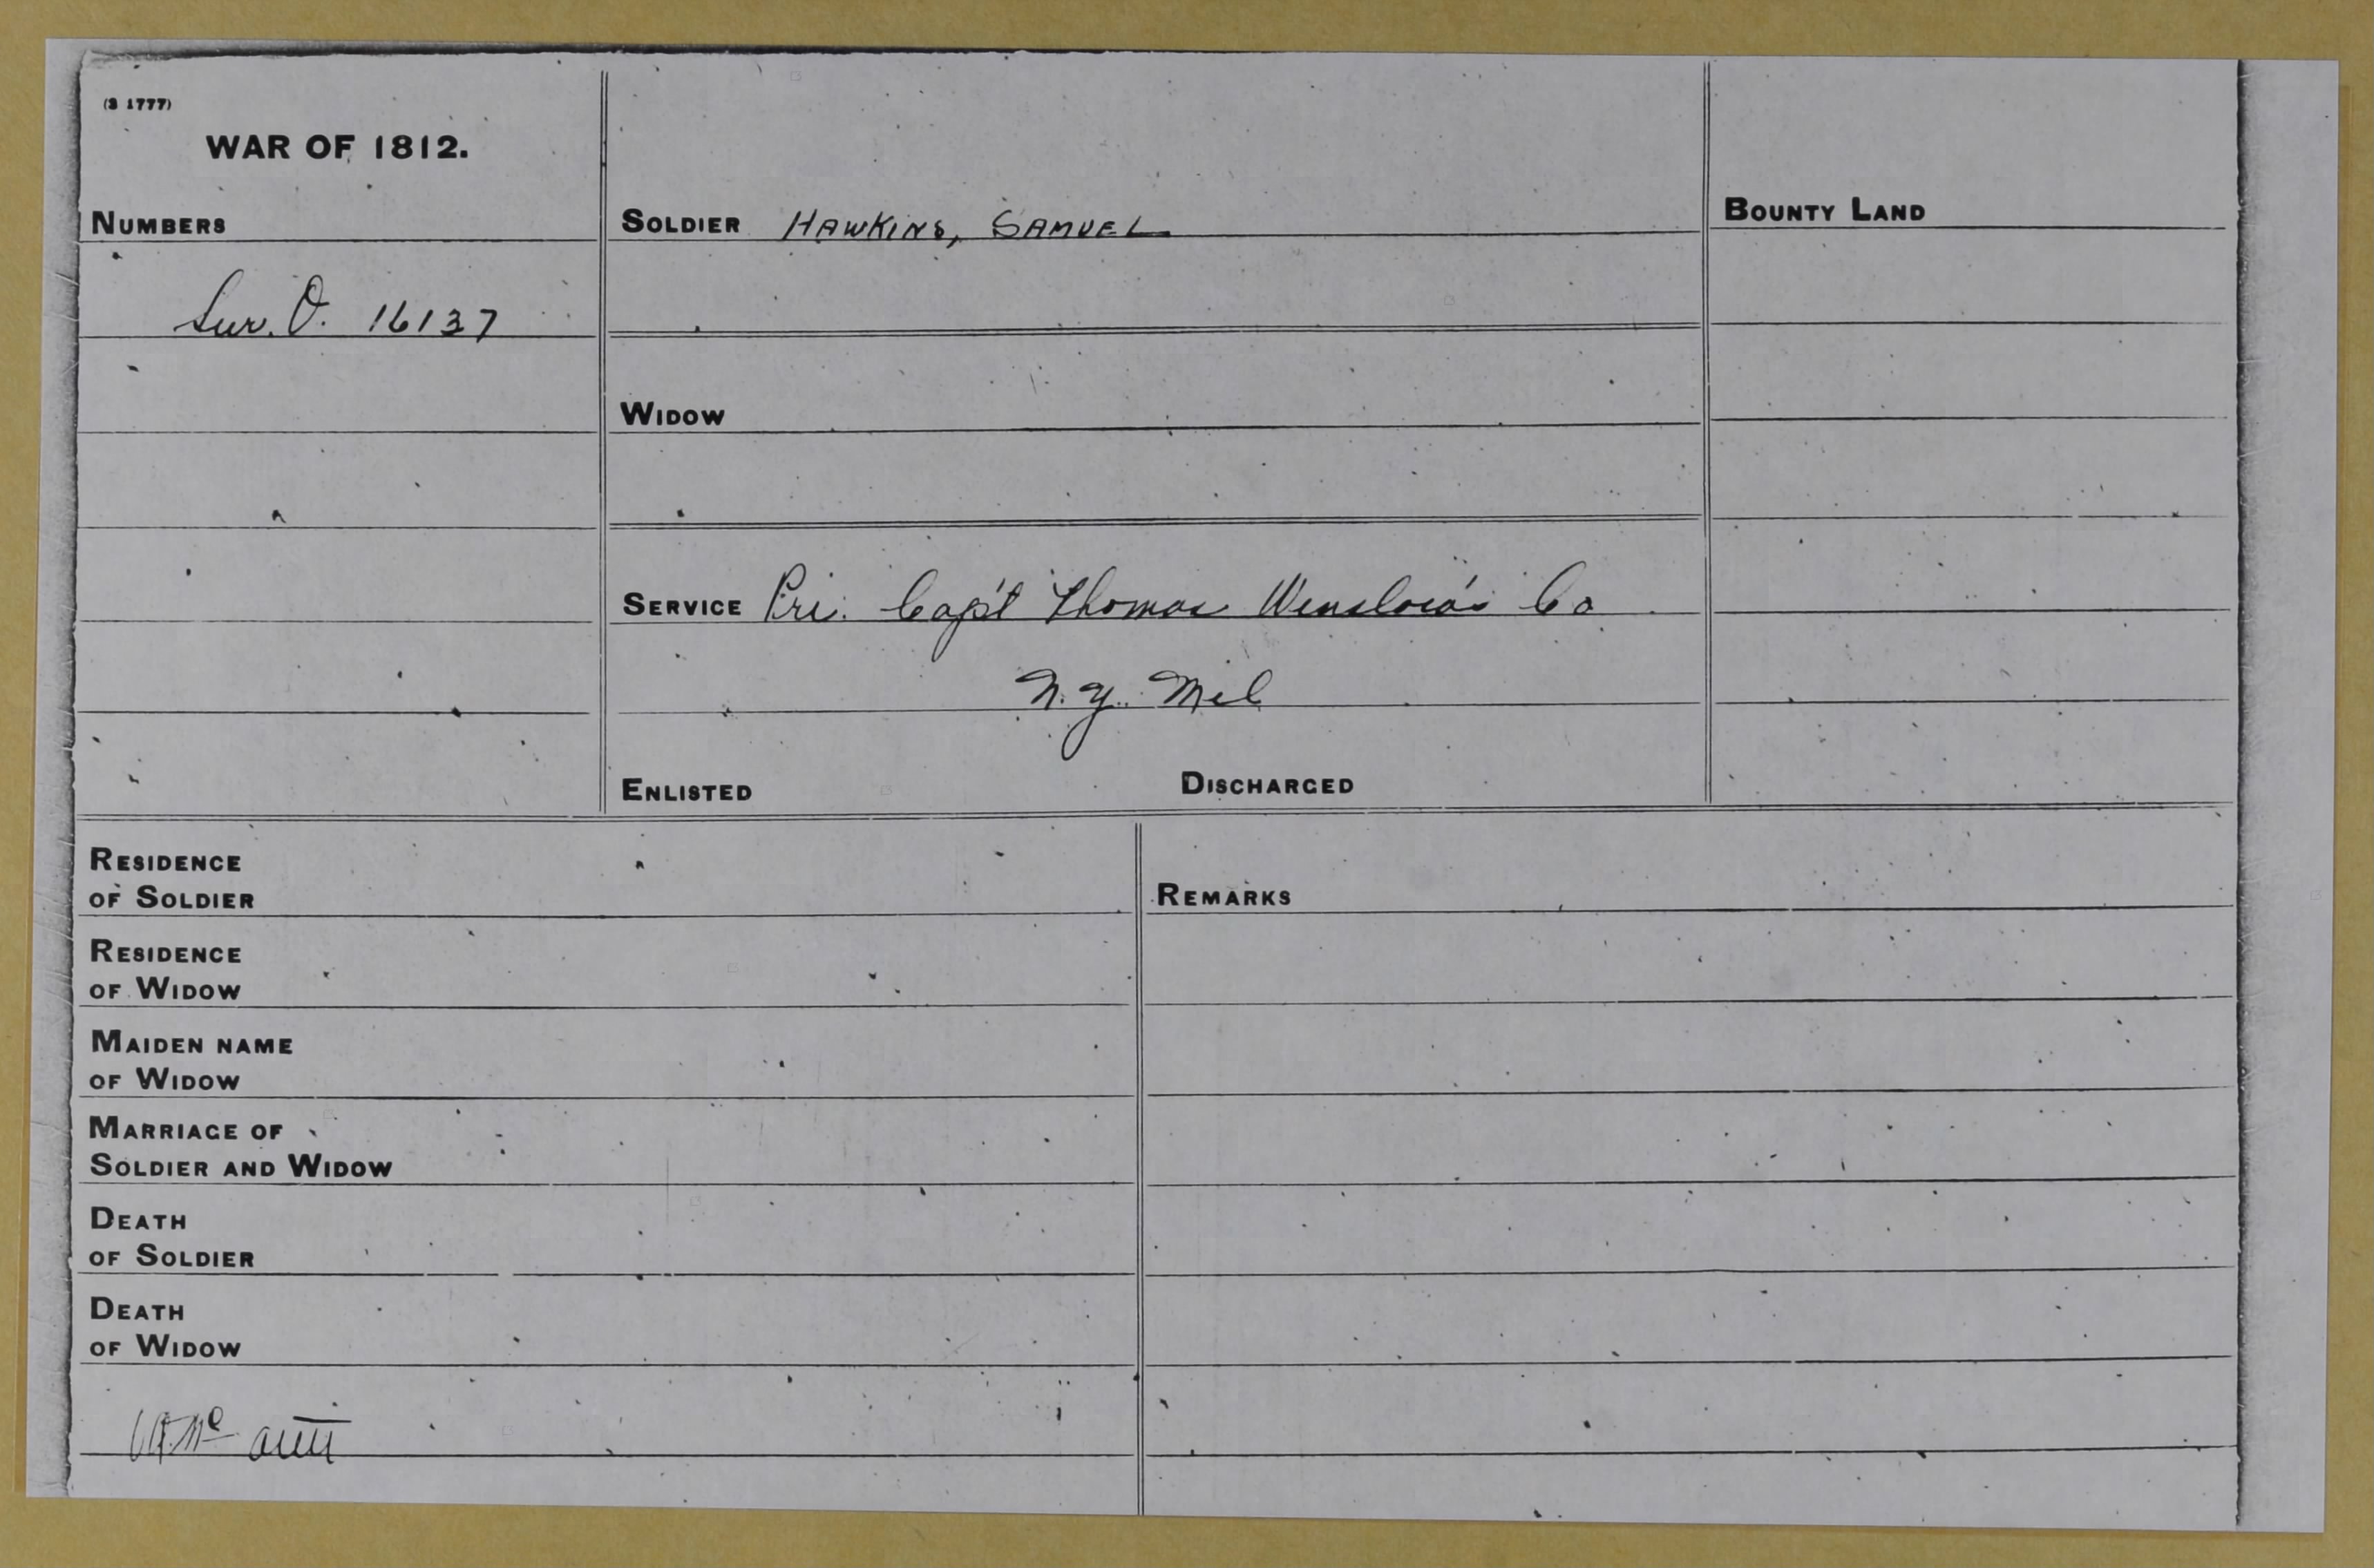 (3 1777)
WAR OF 1812.
NUMBERS
Sur. O. 16137
SOLDIER HAWKINS, SAMUEL
WIDOW
SERVICE Pri. Cap't Thomas Winslow's Co
N.Y. Mil
ENLISTED DISCHARGED
BOUNTY LAND
RESIDENCE
OF SOLDIER
RESIDENCE
OF WIDOW
MAIDEN NAME
OF WIDOW
MARRIAGE OF
SOLDIER AND WIDOW
DEATH
OF SOLDIER
DEATH
OF WIDOW
REMARKS